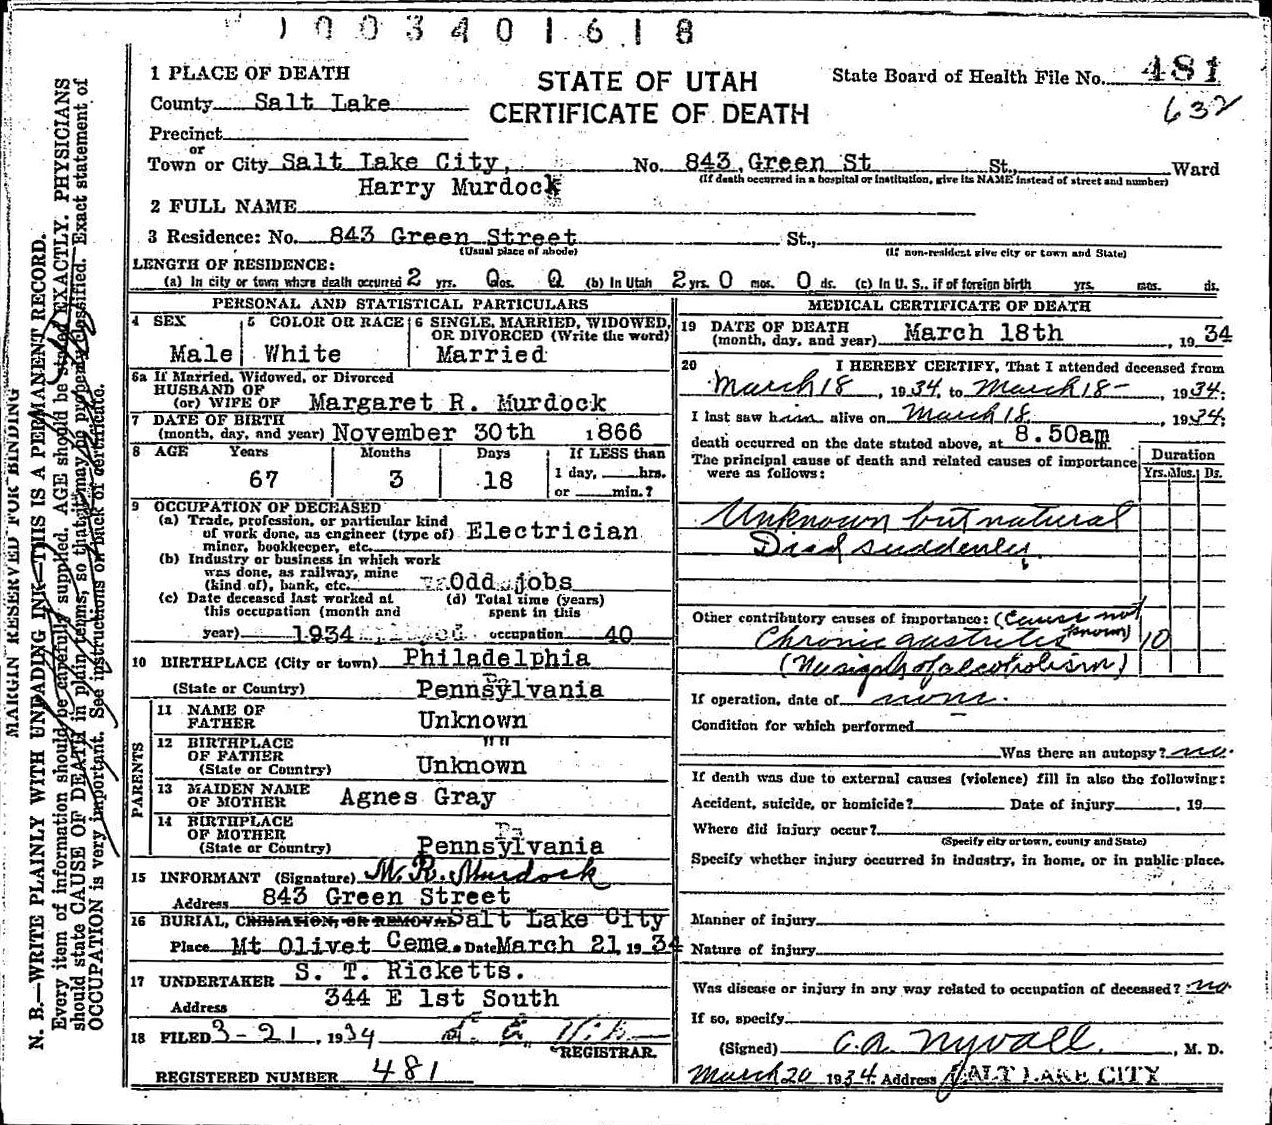 1003401618
1 PLACE OF DEATH
STATE OF UTAH
CERTIFICATE OF DEATH
State Board of Health File No. 481
632
County Salt Lake
Precinct
or
Town or City Salt Lake City, No. 843, Green St St., Ward
(If death occurred in a hospital or institution, give its NAME instead of street and number)
Harry Murdock
2 FULL NAME
3 Residence: No. 843 Green Street St.,
(Usual place of abode) (If non-resident give city or town and State)
LENGTH OF RESIDENCE:
(a) In city or town where death occurred 2 yrs. 0 os. 0 (b) In Utah 2 yrs. 0 mos. 0 ds. (c) In U. S., if of foreign birth yrs. mos. ds.
PERSONAL AND STATISTICAL PARTICULARS
4 SEX
Male
5 COLOR OR RACE
White
6 SINGLE, MARRIED, WIDOWED, OR DIVORCED (Write the word)
Married
6a If Married, Widowed, or Divorced
HUSBAND OF
(or) WIFE OF Margaret R. Murdock
7 DATE OF BIRTH
(month, day, and year) November 30th 1866
8 AGE Years Months Days If LESS than
67 3 18 1 day, hrs.
or min.?
9 OCCUPATION OF DECEASED
(a) Trade, profession, or particular kind
of work done, as engineer (type of) Electrician
miner, bookkeeper, etc.
(b) Industry or business in which work
was done, as railway, mine
(kind of), bank, etc. Odd jobs
(c) Date deceased last worked at (d) Total time (years)
this occupation (month and spent in this
year) 1934 occupation 40
10 BIRTHPLACE (City or town) Philadelphia
(State or Country) Pennsylvania
PARENTS
11 NAME OF
FATHER Unknown
12 BIRTHPLACE " "
OF FATHER
(State or Country) Unknown
13 MAIDEN NAME
OF MOTHER Agnes Gray
14 BIRTHPLACE
OF MOTHER
(State or Country) Pennsylvania
15 INFORMANT (Signature) M. R. Murdock
Address 843 Green Street
16 BURIAL, CREMATION, OR REMOVAL Salt Lake City
Place Mt Olivet Ceme. Date March 21, 1934
17 UNDERTAKER S. T. Ricketts.
Address 344 E 1st South
18 FILED 3-21, 1934
REGISTRAR.
REGISTERED NUMBER 481
MEDICAL CERTIFICATE OF DEATH
19 DATE OF DEATH
(month, day, and year) March 18th, 1934
20 I HEREBY CERTIFY, That I attended deceased from
March 18, 1934, to March 18-, 1934;
I last saw him alive on March 18, 1934;
death occurred on the date stated above, at 8.50am
The principal cause of death and related causes of importance
were as follows:
Duration
Yrs. Mos. Ds.
Unknown but natural
Died suddenly.
Other contributory causes of importance: (Cause not
known)
Chronic gastritis 10
(No signs of alcoholism)
If operation, date of none.
Condition for which performed
Was there an autopsy? no.
If death was due to external causes (violence) fill in also the following:
Accident, suicide, or homicide? Date of injury, 19
Where did injury occur?
(Specify city or town, county and State)
Specify whether injury occurred in industry, in home, or in public place.
Manner of injury
Nature of injury
Was disease or injury in any way related to occupation of deceased? no
If so, specify
(Signed) C. A. Nyvall, M. D.
March 20 1934. Address SALT LAKE CITY
MARGIN RESERVED FOR BINDING
N. B.—WRITE PLAINLY WITH UNFADING INK—THIS IS A PERMANENT RECORD.
Every item of information should be carefully supplied. AGE should be stated EXACTLY. PHYSICIANS
should state CAUSE OF DEATH in plain terms, so that it may be properly classified. Exact statement of
OCCUPATION is very important. See instructions on back of certificate.